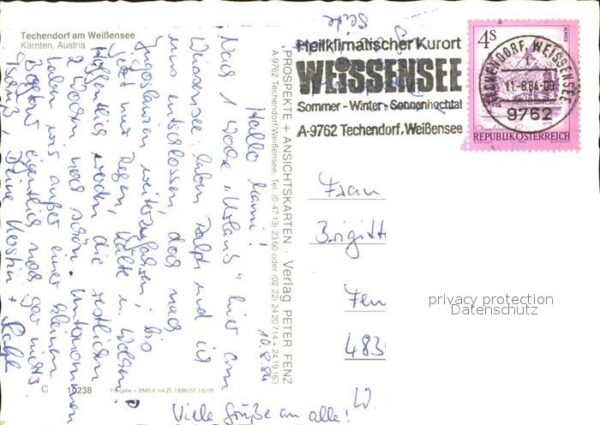 Techendorf am Weißensee
Kärnten, Austria
Seite
Hallo Mami!
10.8.84
Nach 1 Woche "Urlaub" hier am
Weissensee haben Ralph und ich
uns entschlossen, doch nach
Jugoslawien weiterzufahren, bis
jetzt nur Regen, Kälte u. Wolken!
Hoffentlich werden die restlichen
2 Wochen noch schön. Unternommen
haben wir außer einer kleinen
eigentlich noch gar nichts.
Kerstin
Ralph
Viele Grüße an alle!
"PROSPEKTE + ANSICHTSKARTEN" - Verlag PETER FENZ
A-9762 Techendorf/Weißensee, Tel. (0 47 13) 23 60 oder (02 22) 24 20 714 + 24 19 163
C
10238
Heilklimatischer Kurort
WEISSENSEE
Sommer - Winter - Sonnenhochtal
A-9762 Techendorf, Weißensee
TECHENDORF, WEISSENSEE
11.-8.84-08
9762
4S
REPUBLIK ÖSTERREICH
Frau
Brigitt
Fen
483
privacy protection
Datenschutz